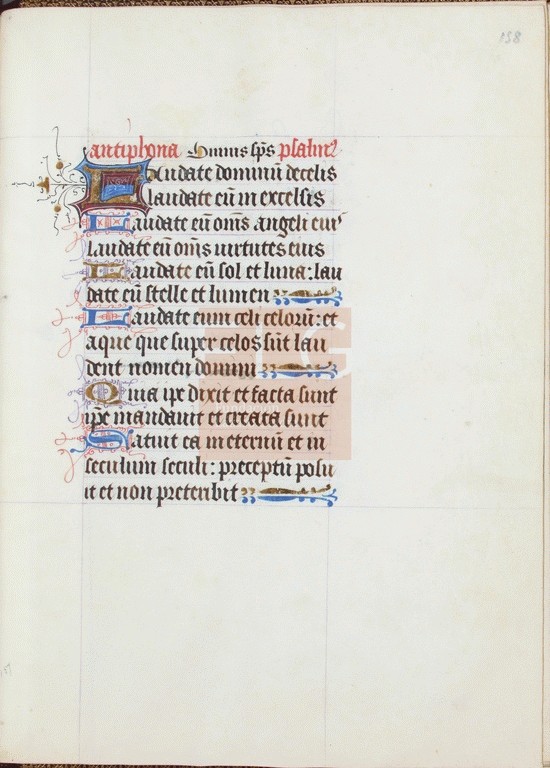 158
antiphona Omnis sp̄s psalm9
Laudate dominū de celis
laudate eū in excelsis
Laudate eū om̄s angeli eius
laudate eū om̄s uirtutes eius
Laudate eū sol et luna: lau
date eū stelle et lumen
Laudate eum celi celorū: et
aque que super celos sūt lau
dent nomen domini
Quia ip̄e dixit et facta sunt
ip̄e mandauit et creata sunt
Statuit ea in eternū et in
seculum seculi: preceptū posu
it et non preteribit